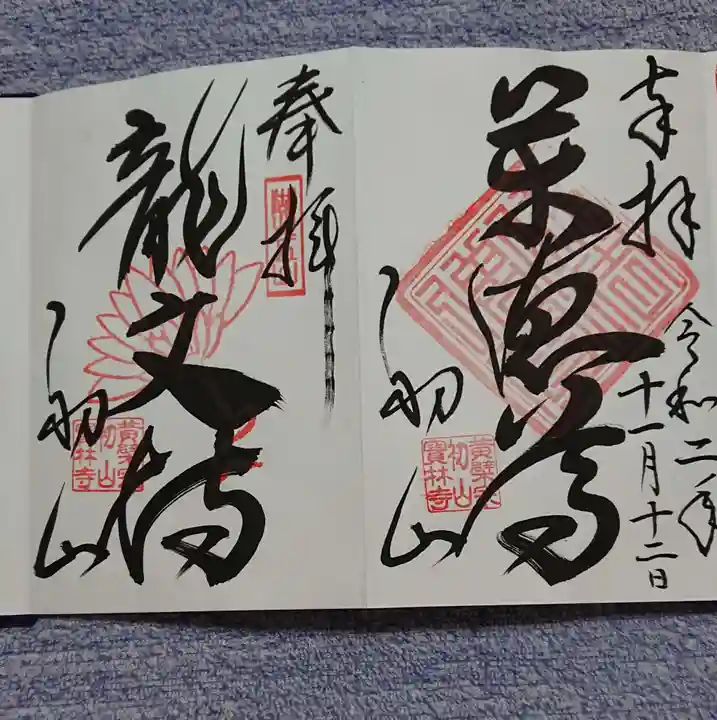 奉拝
令和二年
十一月十二日
恵尊
初山
黄檗宗
初山
寶林寺
奉拝
龍文
初山
黄檗宗
初山
寶林寺